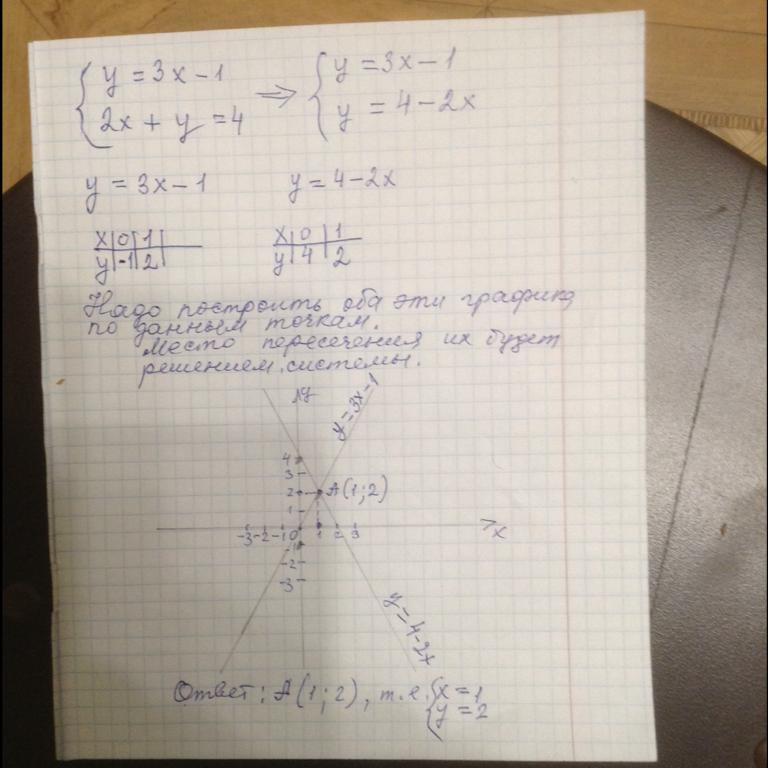 { y = 3x - 1 ⇒ { y = 3x - 1
{ 2x + y = 4 { y = 4 - 2x
y = 3x - 1 y = 4 - 2x
x | 0 | 1 | x | 0 | 1
y | -1 | 2 | y | 4 | 2
Надо построить оба эти графика
по данным точкам.
Место пересечения их будет
решением системы.
y
y = 3x - 1
4
3
2 A(1;2)
1
-3 -2 -1 0 1 2 3 x
-1
-2
-3
y = 4 - 2x
Ответ: A(1;2), т.е. { x = 1
{ y = 2